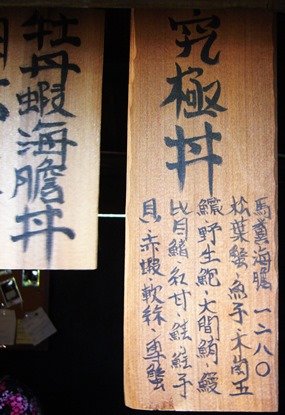 究極丼
馬糞海膽 一二八〇
松葉蟹·魚子·木崗玉
野生鮑·大間鮪·鰻
比目鰭·紅甘·鮭·鮭子
貝·赤蝦·軟絲·專蟹
牡丹蝦海膽丼